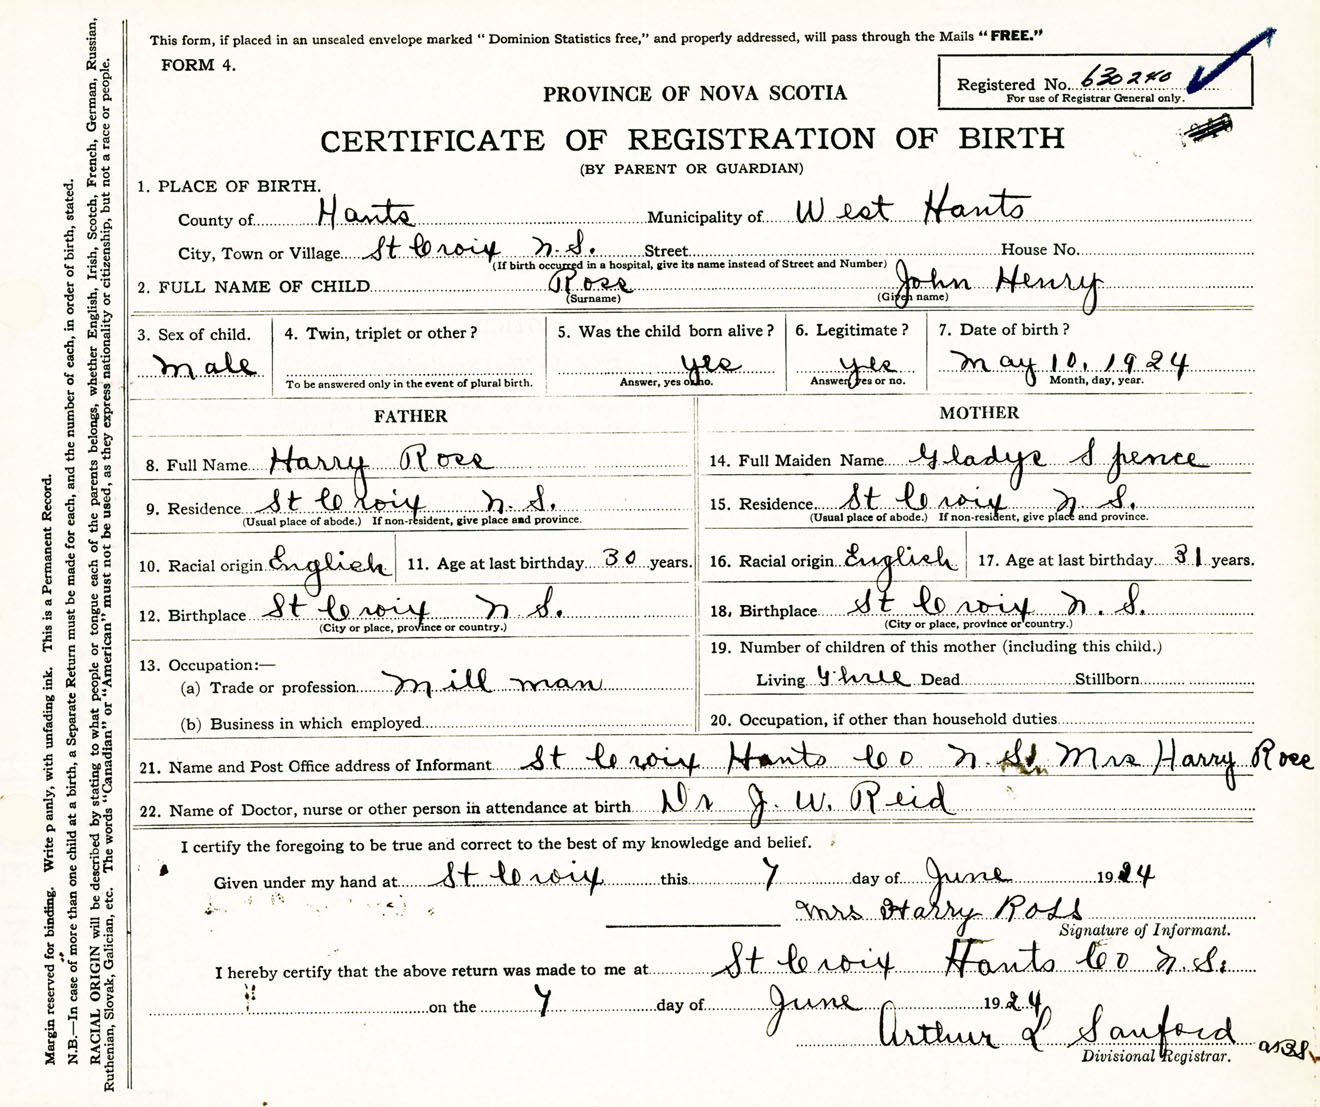 This form, if placed in an unsealed envelope marked "Dominion Statistics free," and properly addressed, will pass through the Mails "FREE."
FORM 4.
Registered No. 630240
For use of Registrar General only.
PROVINCE OF NOVA SCOTIA
CERTIFICATE OF REGISTRATION OF BIRTH
(BY PARENT OR GUARDIAN)
1. PLACE OF BIRTH.
County of Hants Municipality of West Hants
City, Town or Village St Croix N.S. Street House No.
(If birth occurred in a hospital, give its name instead of Street and Number)
2. FULL NAME OF CHILD Ross John Henry
(Surname) (Given name)
3. Sex of child. 4. Twin, triplet or other? 5. Was the child born alive? 6. Legitimate? 7. Date of birth?
Male yes yes May 10, 1924
To be answered only in the event of plural birth. Answer, yes or no. Answer, yes or no. Month, day, year.
FATHER MOTHER
8. Full Name Harry Ross 14. Full Maiden Name Gladys Spence
9. Residence St Croix N.S. 15. Residence St Croix N.S.
(Usual place of abode.) If non-resident, give place and province. (Usual place of abode.) If non-resident, give place and province.
10. Racial origin English 11. Age at last birthday 30 years. 16. Racial origin English 17. Age at last birthday 31 years.
12. Birthplace St Croix N S. 18. Birthplace St Croix N. S.
(City or place, province or country.) (City or place, province or country.)
13. Occupation:— 19. Number of children of this mother (including this child.)
(a) Trade or profession Mill man Living Three Dead Stillborn
(b) Business in which employed 20. Occupation, if other than household duties
21. Name and Post Office address of Informant St Croix Hants Co N.S. Mrs Harry Ross
22. Name of Doctor, nurse or other person in attendance at birth Dr J. W. Reid
I certify the foregoing to be true and correct to the best of my knowledge and belief.
Given under my hand at St Croix this 7 day of June 1924
Mrs Harry Ross
Signature of Informant.
I hereby certify that the above return was made to me at St Croix Hants Co N.S.
on the 7 day of June 1924
Arthur L Sanford
Divisional Registrar.
Margin reserved for binding. Write p ainly, with unfading ink. This is a Permanent Record.
N.B.—In case of more than one child at a birth, a Separate Return must be made for each, and the number of each, in order of birth, stated.
RACIAL ORIGIN will be described by stating to what people or tongue each of the parents belongs, whether English, Irish, Scotch, French, German, Russian,
Ruthenian, Slovak, Galician, etc. The words "Canadian" or "American" must not be used, as they express nationality or citizenship, but not a race or people.